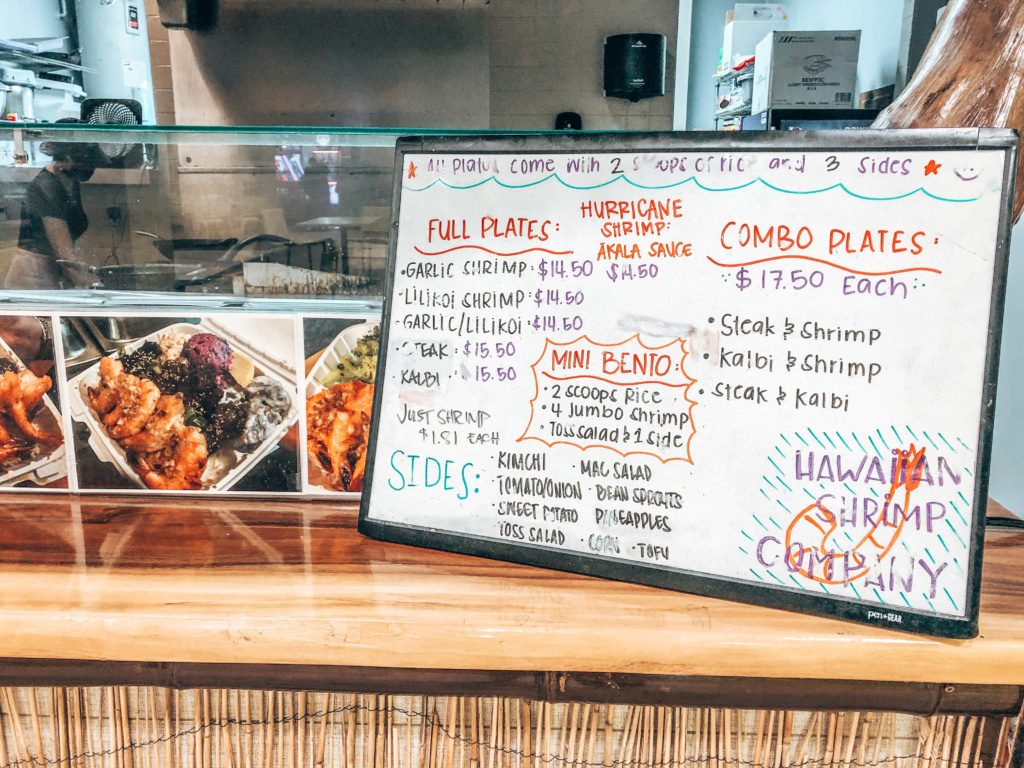 All come with 2 of and 3 sides
FULL PLATES:
• GARLIC SHRIMP: $14.50
• LILIKOI SHRIMP: $14.50
• GARLIC/LILIKOI: $14.50
• STEAK: $15.50
• KALBI: $15.50
JUST SHRIMP
$1.81 EACH
HURRICANE
SHRIMP:
ĀKALA SAUCE
$14.50
MINI BENTO:
• 2 SCOOPS RICE
• 4 JUMBO SHRIMP
• TOSS SALAD & 1 SIDE
COMBO PLATES:
$17.50 Each
• Steak & Shrimp
• Kalbi & Shrimp
• Steak & Kalbi
SIDES:
• KIMCHI • MAC SALAD
• TOMATO/ONION • BEAN SPROUTS
• SWEET POTATO PINEAPPLES
• TOSS SALAD • CORN • TOFU
HAWAIIAN
SHRIMP
COMPANY
pen+GEAR